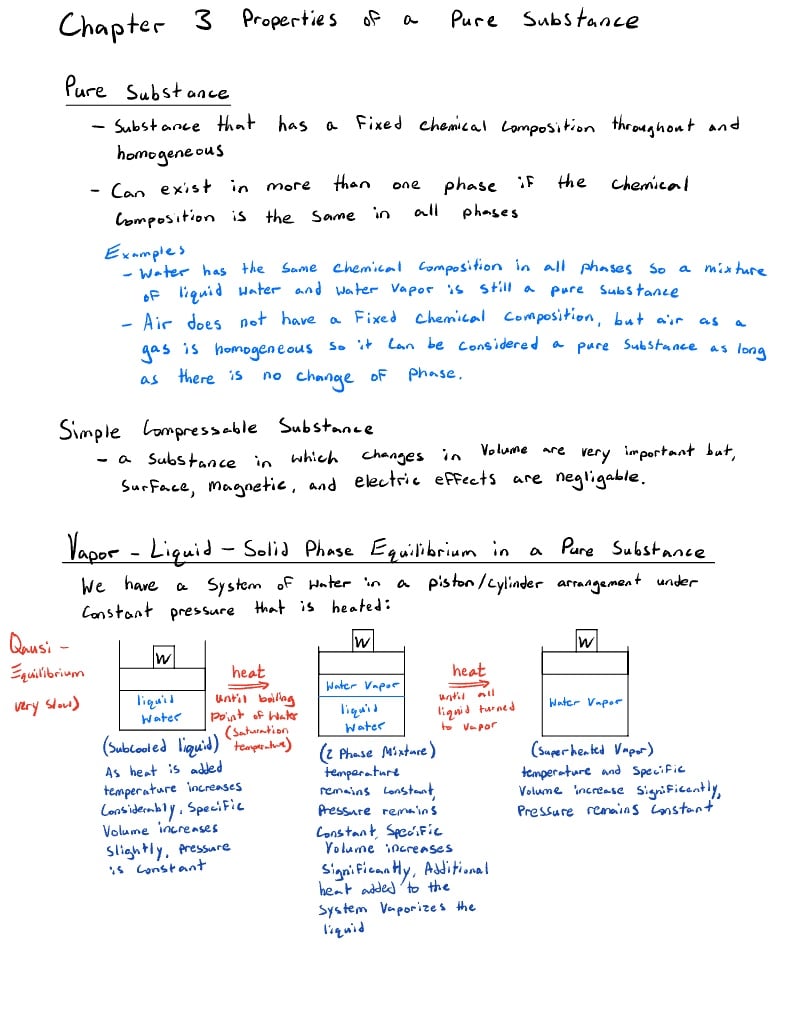 Chapter 3 Properties of a Pure Substance
Pure Substance
- Substance that has a Fixed chemical composition throughout and
homogeneous
- Can exist in more than one phase if the chemical
Composition is the same in all phases
Examples
- Water has the same chemical composition in all phases so a mixture
of liquid water and water vapor is still a pure substance
- Air does not have a Fixed chemical composition, but air as a
gas is homogeneous so it can be considered a pure substance as long
as there is no change of phase.
Simple Compressable Substance
- a substance in which changes in volume are very important but,
surface, magnetic, and electric effects are negligable.
Vapor - Liquid - Solid Phase Equilibrium in a Pure Substance
We have a system of water in a piston/cylinder arrangement under
constant pressure that is heated:
Qausi -
Equilibrium
very slow)
W
liquid
water
heat
until boiling
point of water
(Saturation
temperature)
W
Water Vapor
liquid
Water
heat
until all
liquid turned
to vapor
W
Water Vapor
(Subcooled liquid)
As heat is added
temperature increases
Considerably, Specific
Volume increases
Slightly, pressure
is constant
(2 Phase Mixture)
temperature
remains constant,
Pressure remains
Constant, Specific
Volume increases
Significantly, Additional
heat added to the
System Vaporizes the
liquid
(Superheated Vapor)
temperature and Specific
Volume increase Significantly,
Pressure remains constant